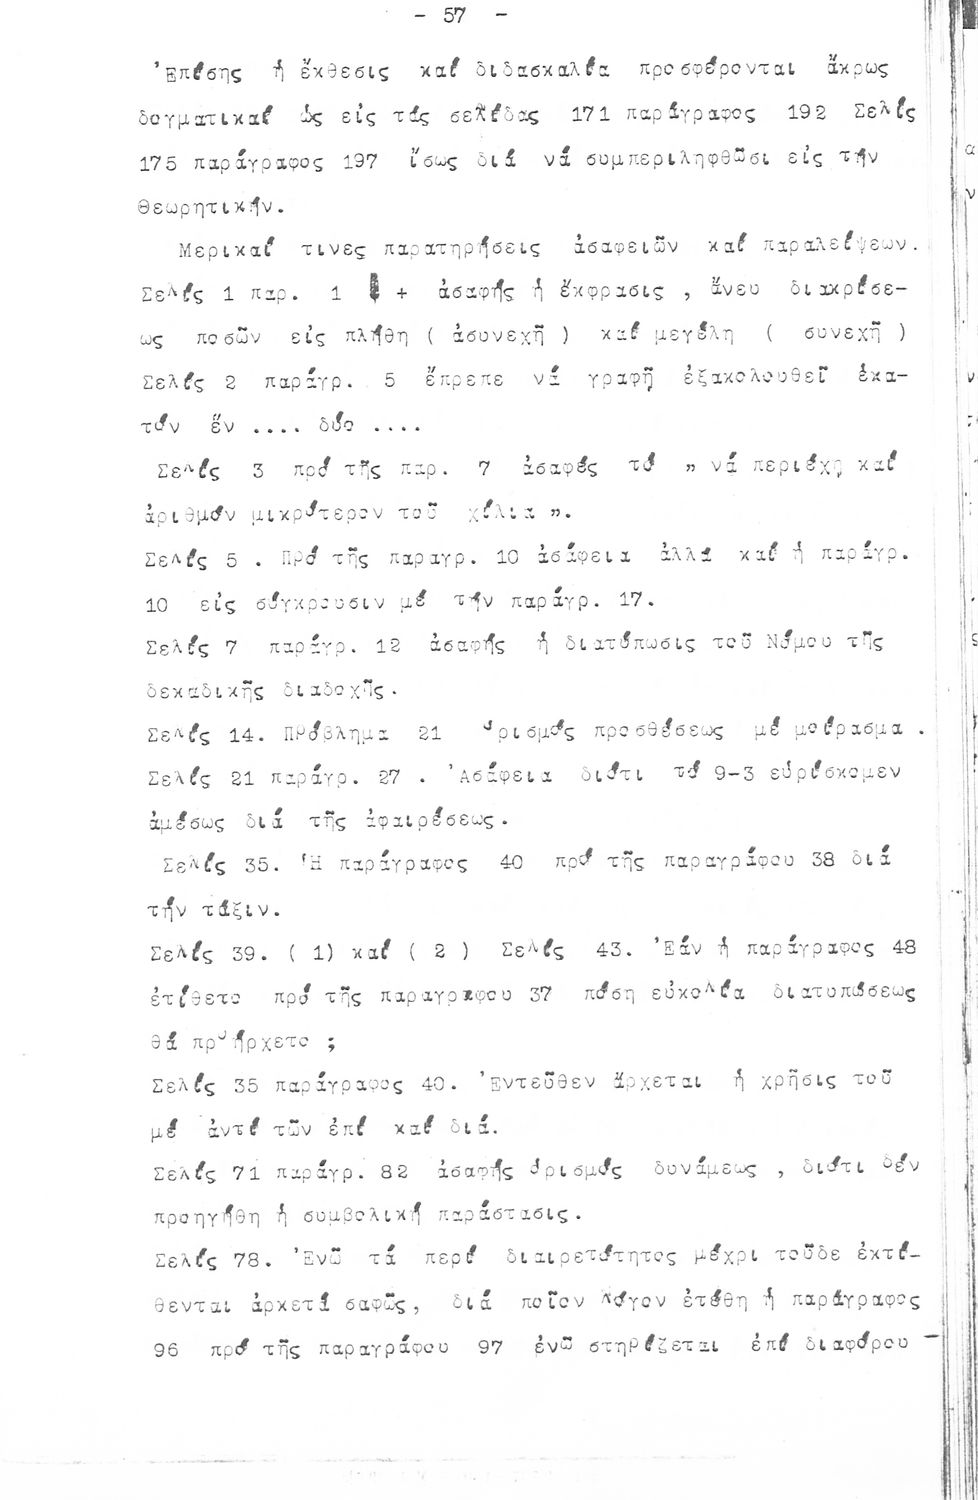 - 57 -
Ἐπίσης ἡ ἔκθεσις καί διδασκαλία προσφέρονται ἄκρως
δογματικαί ὡς εἰς τάς σελίδας 171 παράγραφος 192 Σελίς
175 παράγραφος 197 ἴσως διά νά συμπεριληφθῶσι εἰς τήν
Θεωρητικήν.
Μερικαί τινες παρατηρήσεις ἀσαφειῶν καί παραλείψεων.
Σελίς 1 παρ. 1 + ἀσαφής ἡ ἔκφρασις , ἄνευ διακρίσε-
ως ποσῶν εἰς πλήθη ( ἀσυνεχῆ ) καί μεγέλη ( συνεχῆ )
Σελίς 2 παράγρ. 5 ἔπρεπε νά γραφῇ ἐξακολουθεῖ ἑκα-
τόν ἕν .... δύο ....
Σελίς 3 πρό τῆς παρ. 7 ἀσαφές τό " νά περιέχῃ καί
ἀριθμόν μικρότερον τοῦ χίλια ".
Σελίς 5 . Πρό τῆς παραγρ. 10 ἀσάφεια ἀλλά καί ἡ παράγρ.
10 εἰς σύγκρουσιν μέ τήν παράγρ. 17.
Σελίς 7 παράγρ. 12 ἀσαφής ἡ διατύπωσις τοῦ Νόμου τῆς
δεκαδικῆς διαδοχῆς.
Σελίς 14. Πρόβλημα 21 ὁρισμός προσθέσεως μέ μοίρασμα .
Σελίς 21 παράγρ. 27 . Ἀσάφεια διότι τό 9-3 εὑρίσκομεν
ἀμέσως διά τῆς ἀφαιρέσεως.
Σελίς 35. Ἡ παράγραφος 40 πρό τῆς παραγράφου 38 διά
τήν τάξιν.
Σελίς 39. ( 1) καί ( 2 ) Σελίς 43. Ἐάν ἡ παράγραφος 48
ἐτίθετο πρό τῆς παραγράφου 37 πόση εὐκολία διατυπώσεως
θά προήρχετο ;
Σελίς 35 παράγραφος 40. Ἐντεῦθεν ἄρχεται ἡ χρῆσις τοῦ
μέ ἀντί τῶν ἐπί καί διά.
Σελίς 71 παράγρ. 82 ἀσαφής ὁρισμός δυνάμεως , διότι δέν
προηγήθη ἡ συμβολική παράστασις.
Σελίς 78. Ἐνῶ τά περί διαιρετότητος μέχρι τοῦδε ἐκτί-
θενται ἀρκετά σαφῶς, διά ποῖον λόγον ἐτέθη ἡ παράγραφος
96 πρό τῆς παραγράφου 97 ἐνῶ στηρίζεται ἐπί διαφόρου -